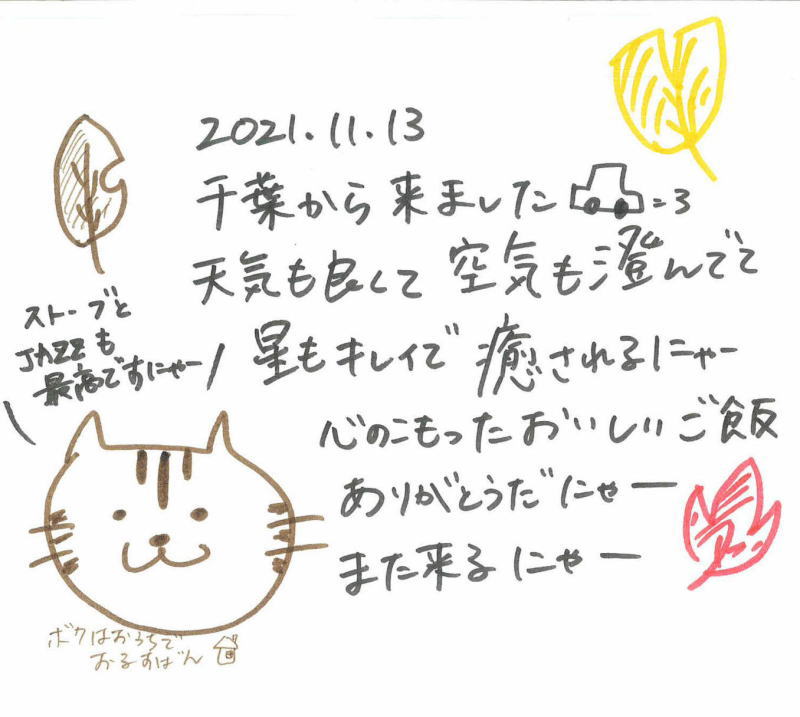 2021.11.13
千葉から来ました =3
天気も良くて 空気も澄んでて
星もキレイで 癒されるにゃー
心のこもったおいしいご飯
ありがとうだにゃー
また来るにゃー
ストーブと
JAZZも
最高ですにゃー
ボクはおうちで
おるすばん